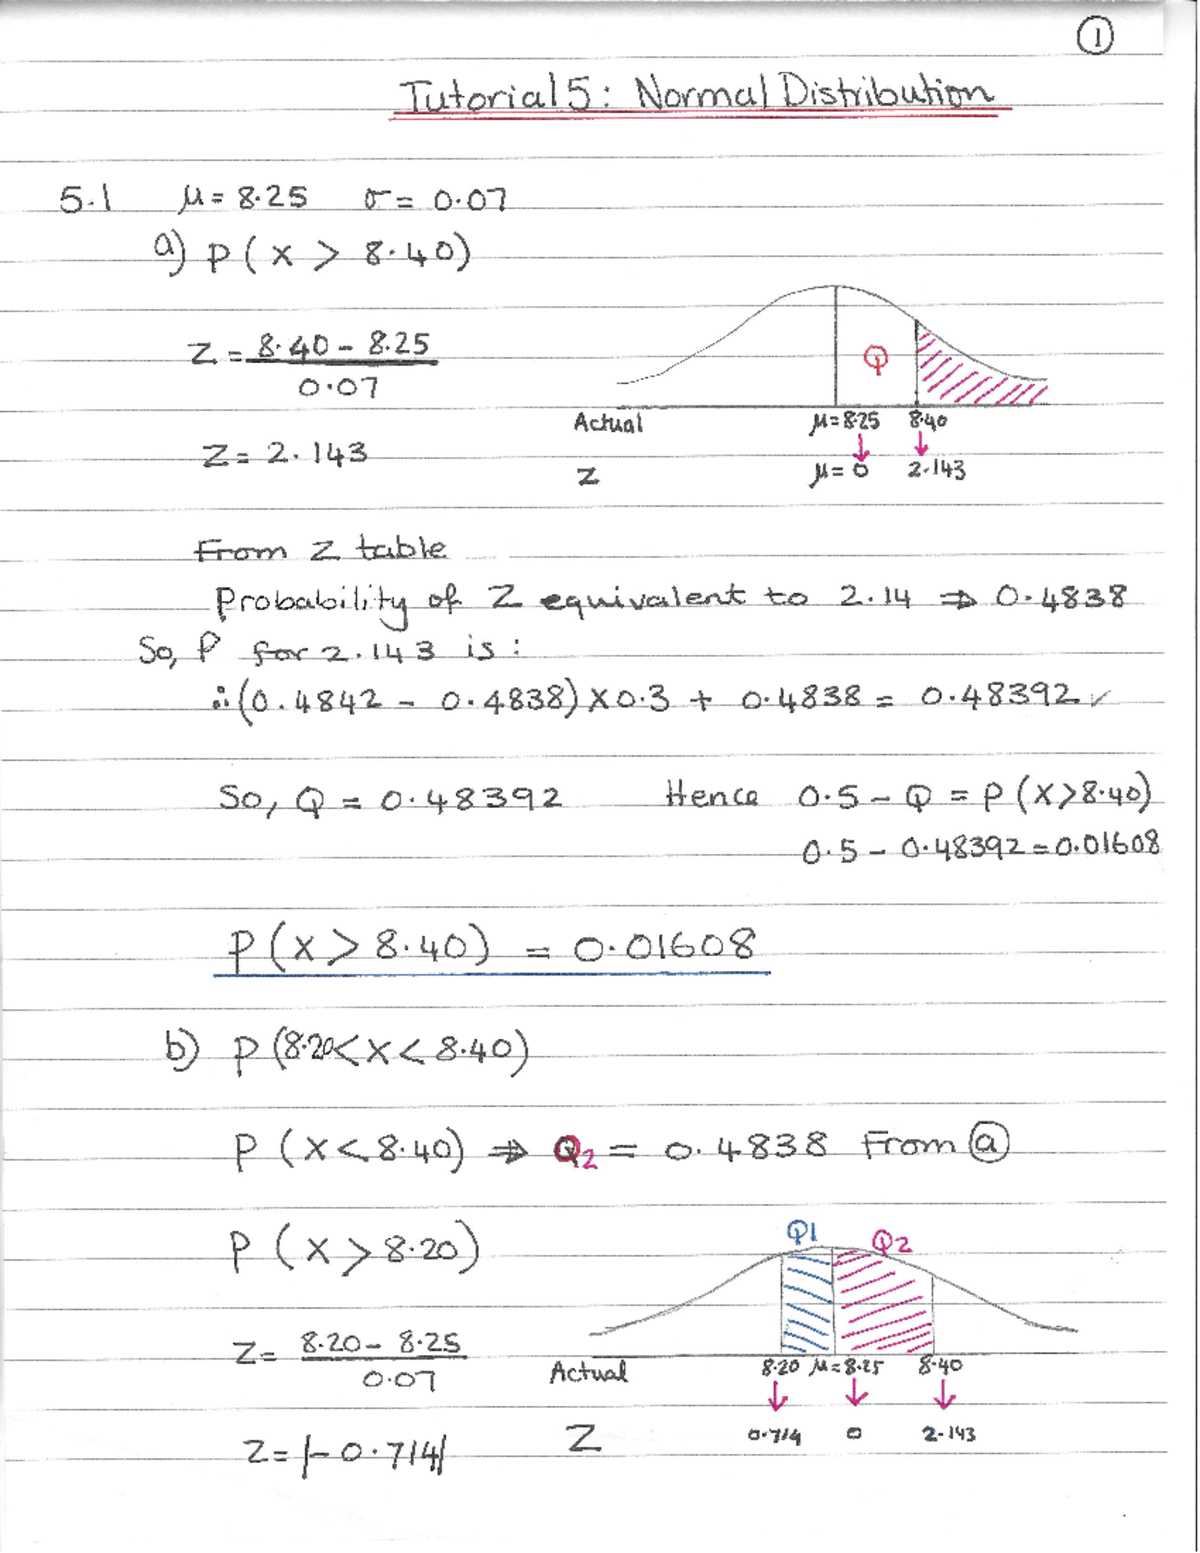 1
Tutorial 5: Normal Distribution
5.1 μ = 8.25 σ = 0.07
a) P ( X > 8.40)
Z = 8.40 - 8.25
0.07
Q
Z = 2.143
Actual μ=8.25 8.40
Z μ= 0 2.143
From Z table
Probability of Z equivalent to 2.14 ⇒ 0.4838
So, P for 2.143 is :
∴ (0.4842 - 0.4838) X 0.3 + 0.4838 = 0.48392 ✓
So, Q = 0.48392 Hence 0.5 - Q = P (X>8.40)
0.5 - 0.48392 = 0.01608
P (X > 8.40) = 0.01608
b) P (8.20< X < 8.40)
P (X < 8.40) ⇒ Q2 = 0.4838 From a
P (X > 8.20)
Q1 Q2
Z = 8.20 - 8.25
0.07
Actual 8.20 μ=8.25 8.40
Z = |-0.714|
Z 0.714 0 2.143